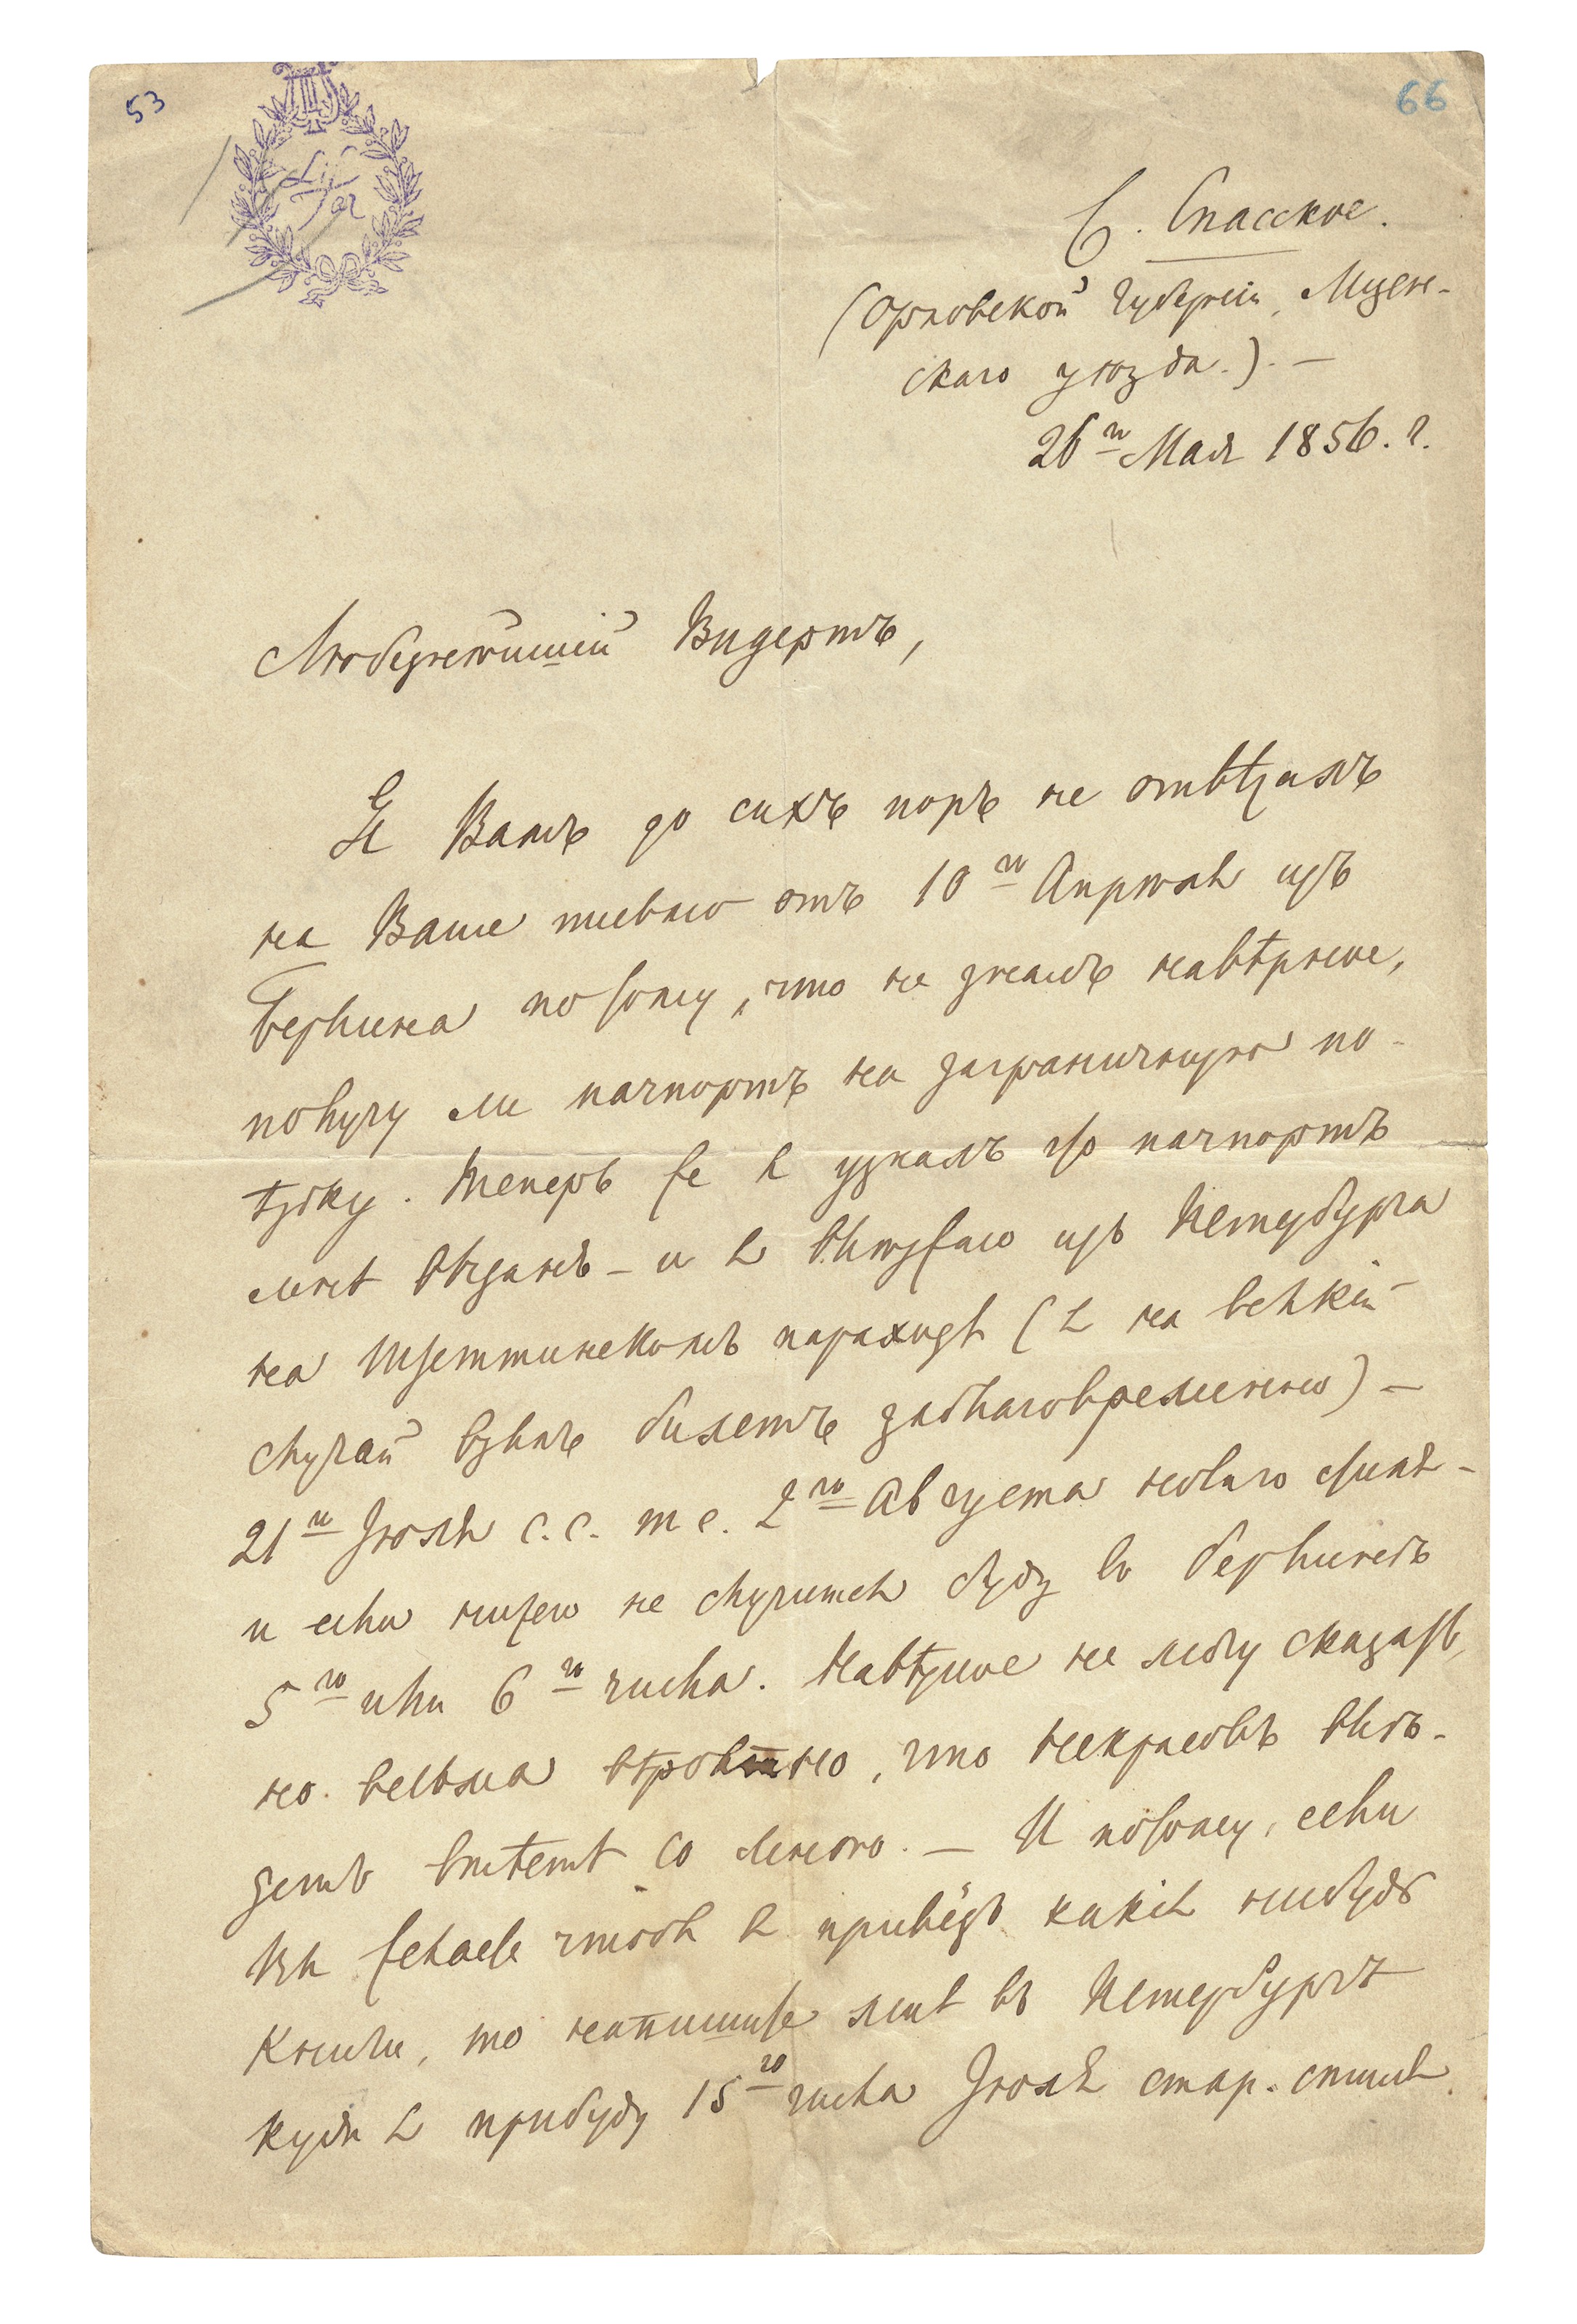 53
66
С. Спасское.
(Орловской Губернiи, Мцен-
скаго уѣзда.). —
26го Мая 1856. г.
Любезнѣйшiй Видертъ,
Я Вамъ до сихъ поръ не отвѣчалъ
на Ваше письмо отъ 10го Апрѣля изъ
Берлина потому, что не зналъ навѣрное,
получу ли пачпортъ на заграничную по-
ѣздку. Теперь же я узналъ что пачпортъ
мнѣ выданъ — и я выѣзжаю изъ Петербурга
на Штеттинскомъ пароходѣ (я на всякiй
случай взялъ билетъ заблаговременно) —
21го Iюля с.с. т е. 2го Августа новаго стиля —
и если ничего не случится буду въ Берлинѣ
5го или 6го числа. Навѣрное не могу сказать,
но весьма вѣроятно, что Некрасовъ выѣ-
детъ вмѣстѣ со мною. — И потому, если
Вы желаете чтобы я привёзъ какiя нибудь
книги, то напишите мнѣ въ Петербургъ
куда я прибуду 15го числа Iюля стар. стиля